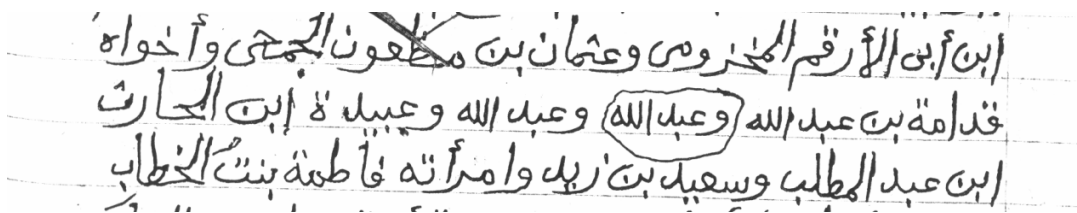 ابن أبى الأرقم المخزومى وعثمان بن مظعون الجمحى وأخواه
قدامة بن عبد الله وعبد الله وعبد الله وعبيدة إبن الحارث
ابن عبد المطلب وسعيد بن زيد وامرأته فاطمة بنت الخطاب